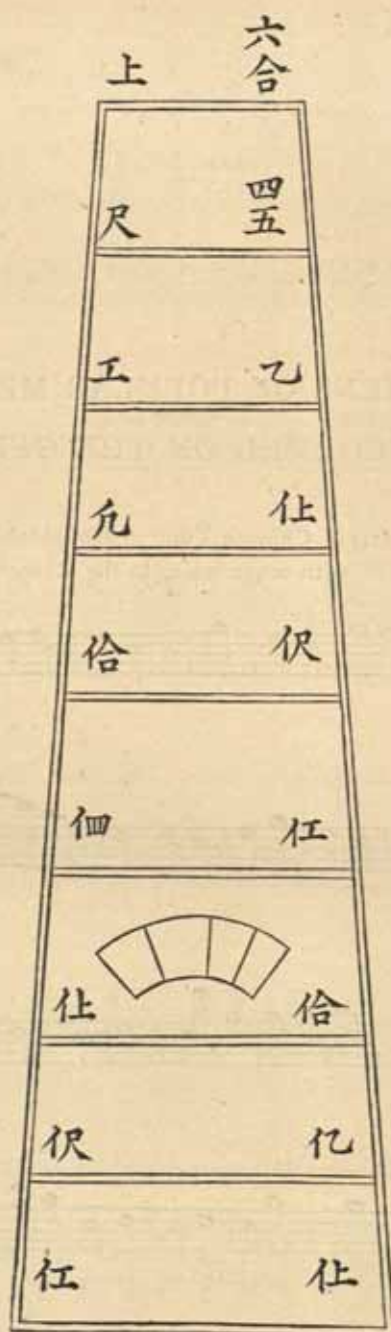 上 六合
尺 四五
工 乙
凢 仩
佮 伬
伵 仜
仩 佮
伬 亿
仜 仩